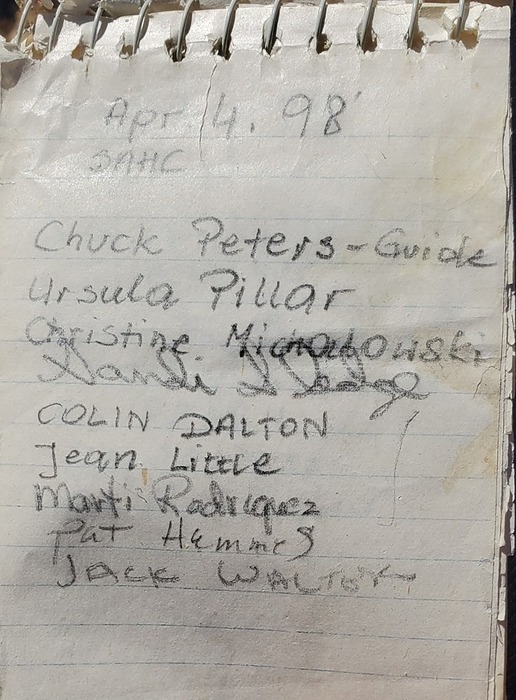 Apr 4. 98'
BAHC
Chuck Peters - Guide
Ursula Pillar
Christine Michalowski
COLIN DALTON
Jean Little
Marti Rodriguez
Pat Hammes
JACK WALTON